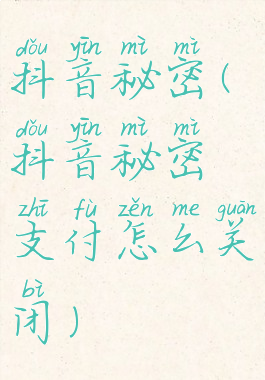 dǒu yīn mì mì
抖音秘密(
dǒu yīn mì mì
抖音秘密
zhī fù zěn me guān
支付怎么关
bì
闭)